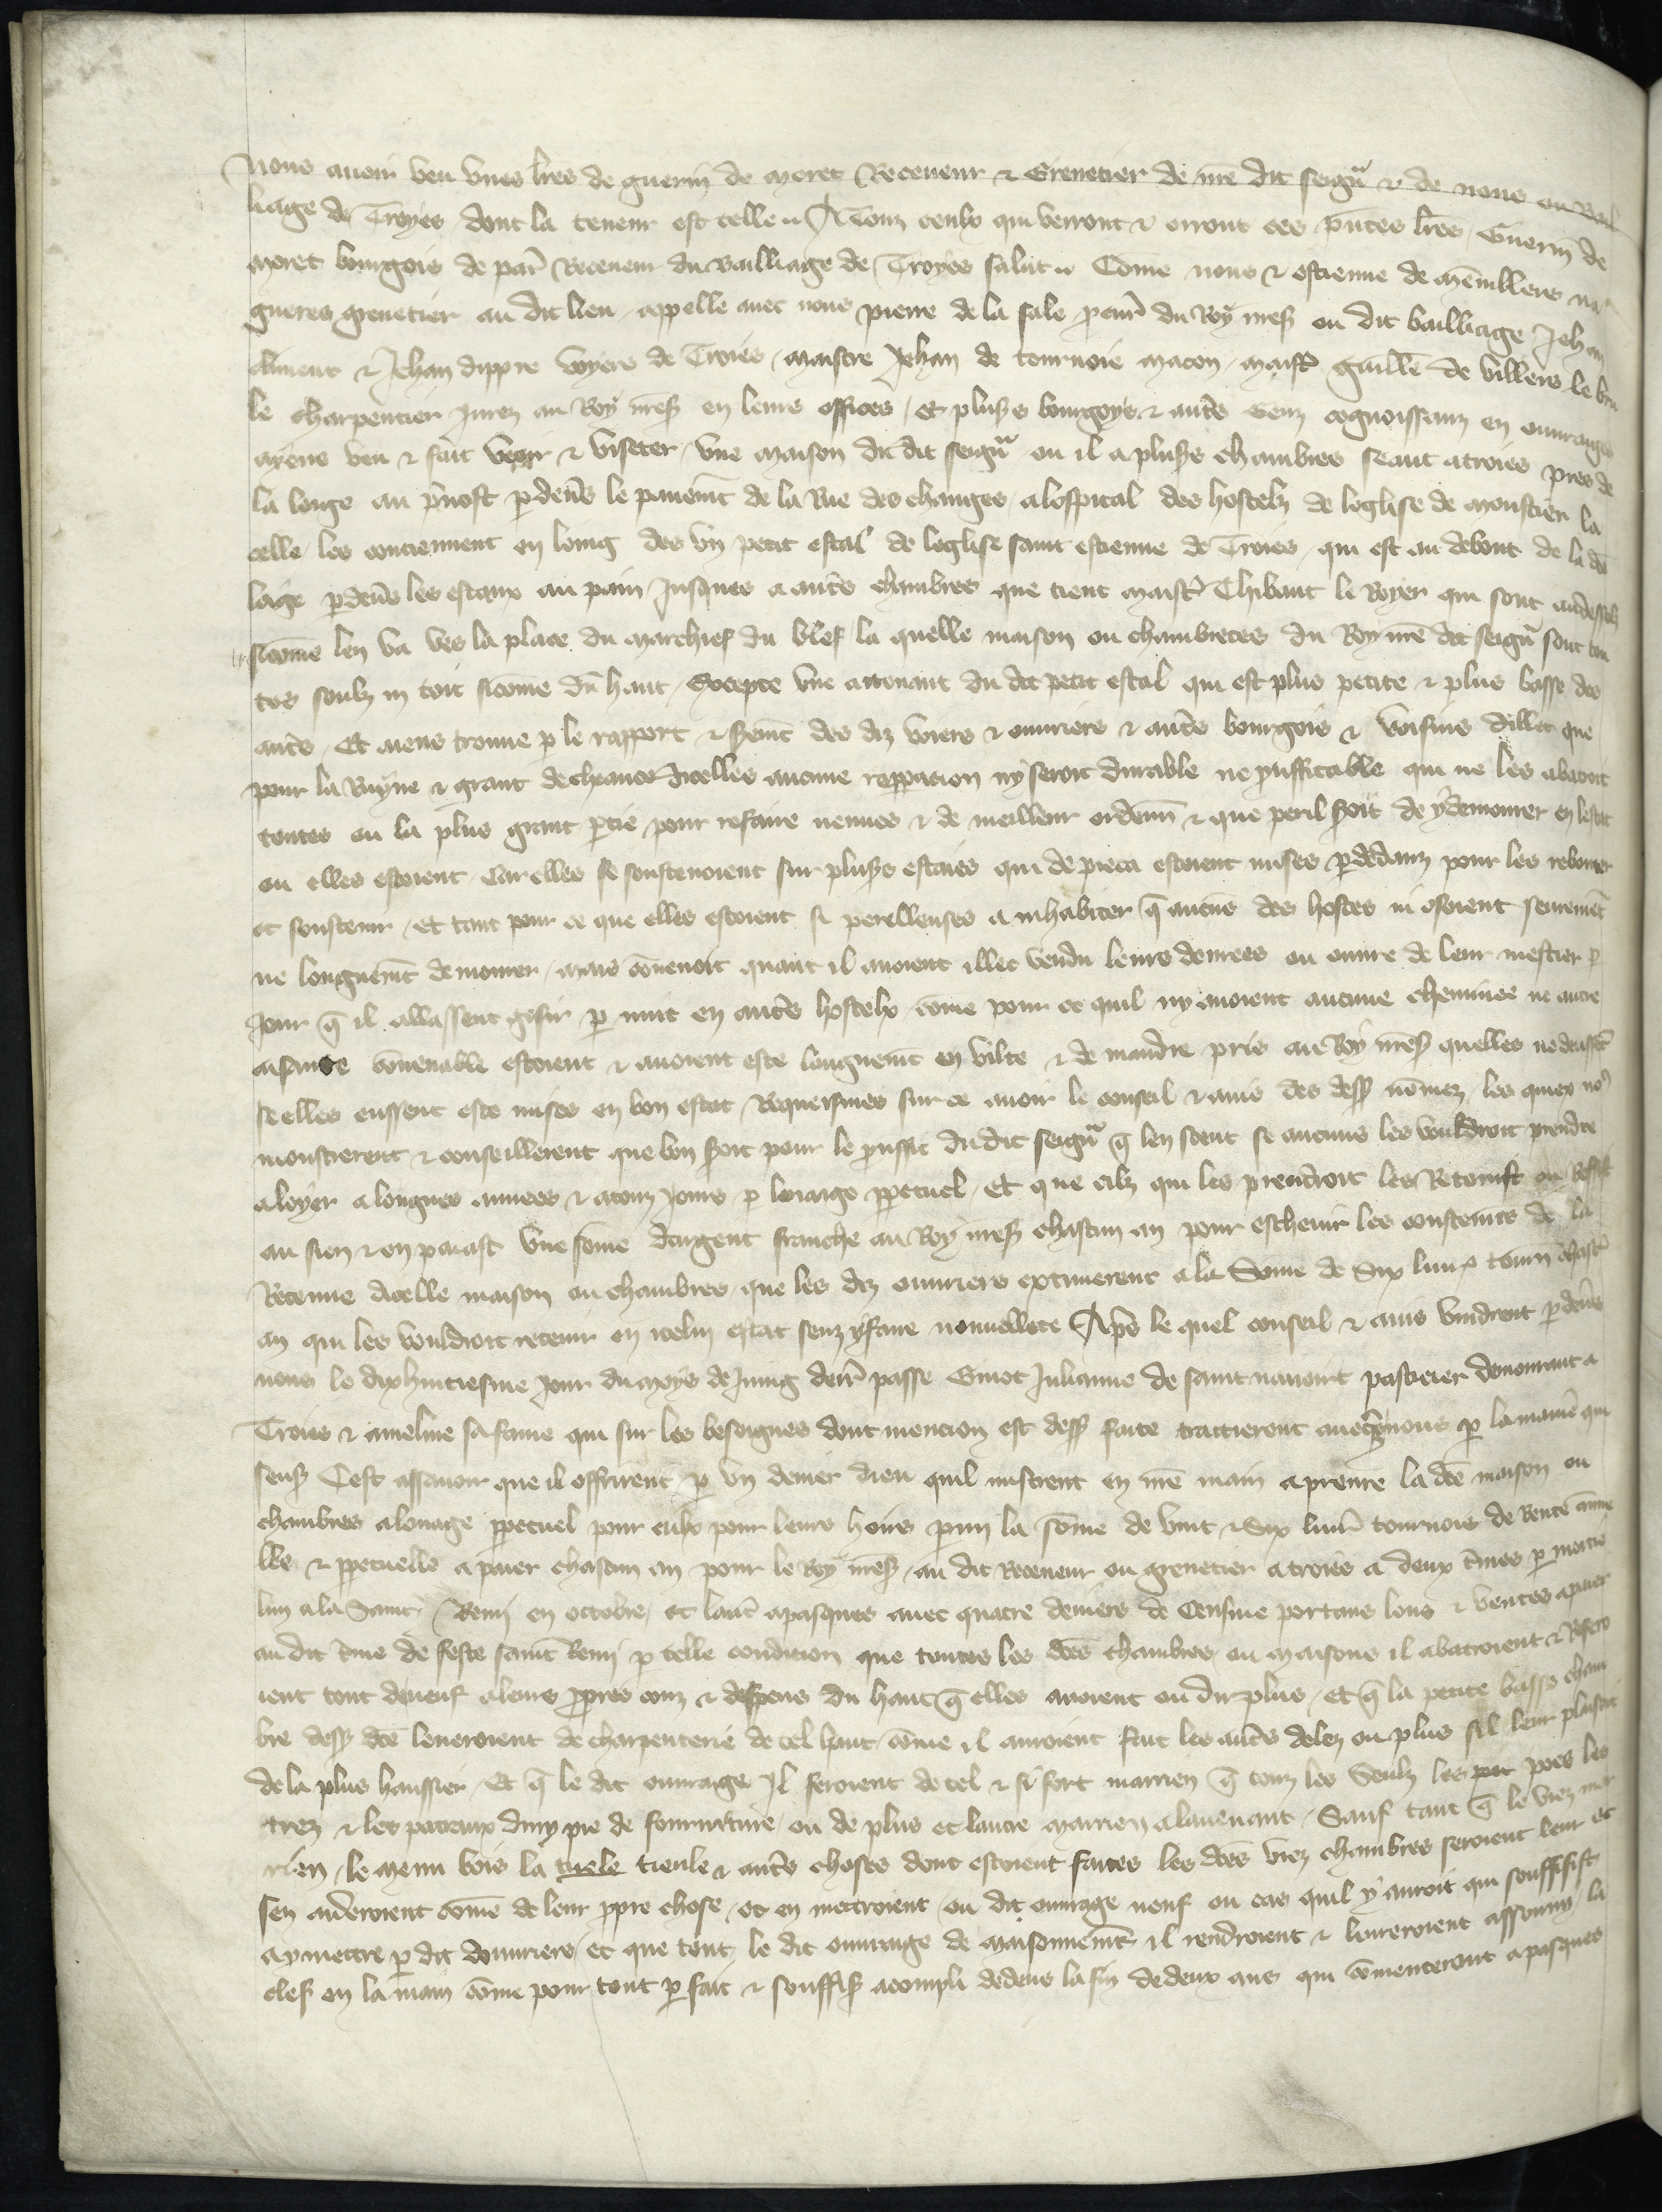 Nous avoir veu unes lr̄es de guerin de moret Receveur & Grenetier de nr̄e dit seigr̄ & de nous ou Bail
liage de Troyes dont la teneur est telle A Touz ceulx qui verront & orront ces p̄ntes lr̄es Guerin de
Moret bourgois de par̄ Receveur du Bailliage de Troyes salut Com̄e nous & estienne de mēmilleres na
gueres grenetier au dit lieu appelle avec nous pierre de la sale p̄cur̄ du Roy nr̄es ou dit bailliage Jehan
climent & Jehan dippre voyers de Troies maistre Jehan de tournoie macon maist̄ guill̄e de villers le bru
le charpentier Jurez au Roy nr̄es en leurs offices et plus̄s bourgoys & aut̄s genz cognoissanz en ouvraiges
ayens veu & fait veoir & viseter une maison du dit seigr̄ ou il a plus̄s chambres seant a troies pres de
la loige au p̄vost p̄devs̄ le pavem̄t de la Rue des changes a lospital des hostelz de leglise de monstier la
celle les contiennent en loing des un petit estal de leglise saint estienne de Troies qui est au debout de la dc̄e
loige p̄devs̄ les estaux au pain Jusques a aut̄s chambres que tient maist̄ Thibaut le Royer qui sont audessoz
sicom̄e len va vs̄ la place du marchief du blef la quelle maison ou chambretes du Roy nr̄e dit seigr̄ sont tou
tes soulz un toit sicome d̄u haut Excepte une attenant du dit petit estal qui est plus petite & plus basse des
aut̄s Et aiens trouve p̄ le rapport & serem̄t des diz voiers & ouvriers & aut̄s bourgois & voisins dillec que
pour la Ruyne & grant decheance dicelles aucune repparacion ny seroit durable ne p̄uffitable qui ne les abatroit
toutes ou la plus grant p̄tie pour refaire neuves & de meilleur ordenn̄ & que peril seroit de y demourer en lestat
ou elles estoient Car elles se soustenoient sur plus̄s estaies qui de pieca estoient mises p̄dedanz pour les rebouter
et soustenir et tant pour ce que elles estoient si perilleuses a inhabiter q̄ aucūs des hostes ni osoient seurem̄t
ne longuem̄t demourer mais cōvenoit quant il avoient illec vendu leurs denrees ou ouvre de leur mestier p̄
Jour q̄ il allassent gesir p̄ nuit en aut̄s hostelx com̄e pour ce quil ny avoient aucune cheminee ne autre
aisance cōvenable estoient & avoient este longuem̄t en vilte & de maindre pris au Roy nr̄es quelles ne deussent
se elles eussent este mises en bon estat Requeismes sur ce avoir le conseil & avis des dess̄ nōmez les quiex no⁹
monstrerent & conseillerent que bon seroit pour le p̄uffit du dit seigr̄ q̄ len sceut se aucuns les vouldroit prendre
a loyer a longues annees & a touz Jours p̄ louaige pp̄etuel Et que cilz qui les prendroit les Retenist ou Refist
au sien & en paiast une som̄e dargent franche au Roy nr̄es chascun an pour eschevir les coustem̄s de la
Retenue dicelle maison ou chambres que les diz ouvriers extimerent a la Som̄e de Six livr̄ tourn̄ chasc̄
an qui les vouldroit retenir en icelui estat senz y faire nouvellete Ap̄s le quel conseil & avis vindrent p̄devs̄
nous le dixhuitiesme Jour du moys de Juing derr̄ passe Guiot Julianne de saint navoirt pastieier demourant a
Troies & ameline sa fame qui sur les besoignes dont mencion est dess̄ faite traitierent avecq̄s nous p̄ la manie qui
sens̄ Cest assavoir que il offrirent p̄ un denier dieu quil mistrent en nr̄e main a prenre la dc̄e maison ou
chambres a louage pp̄etuel pour eulx pour leurs hoirs p̄mi la som̄e de vint & Six livr̄ tournois de Rente ānue
lle & pp̄etuelle a paier chascun an pour le Roy nr̄es au dit Receveur ou grenetier a troies a deux t̄mes p̄ moitie
lun a la Saint Remi en octobre et lautr̄ a pasques avec quatre deniers de Censive portans lous & ventes a paier
au dit t̄me de feste saint Remi p̄ telle condicion que toutes les dc̄es chambres ou maisons il abatroient & Refero
ient tout de neuf a leurs pp̄res couz & despens du haut q̄ elles avoient ou du plus et q̄ la petite basse cham
bre dess̄ dc̄e leveroient de charpenterie de tel haut cōme il avroient fait les aut̄s delez ou plus sil leur plaisoit
de la plus haussier Et q̄ le dit ouvraige Il feroient de tel & si fort marrien q̄ touz les seulz les poz les
trez & les posteaux dun pie de fourniture ou de plus et lautre marrien a lavenant Sauf tant q̄ le viez mar
rien le menu bois la tuele tieule & aut̄s choses dont estoient faites les dc̄es viez chambres seroient leur et
sen aideroient com̄e de leur pp̄re chose et en mettroient ou dit ouvrage neuf ou cas quil y auroit qui souffisist
a y mettre p̄ dit douvriers et que tout le dit ouvrage de maisonnem̄t il rendroient & livreroient assouvy la
clef en la main com̄e pour tout p̄fait & souffis̄ acompli dedens la fin de deux ans qui cōmenceront a pasques